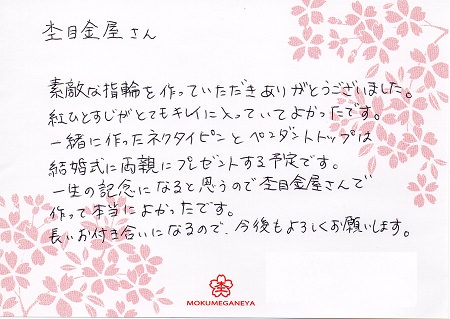 杢目金屋さん
素敵な指輪を作っていただきありがとうございました。
紅ひとすじがとてもキレイに入っていてよかったです。
一緒に作ったネクタイピンとペンダントトップは
結婚式に両親にプレゼントする予定です。
一生の記念になると思うので杢目金屋さんで
作って本当によかったです。
長いお付き合いになるので、今後もよろしくお願いします。
MOKUMEGANEYA